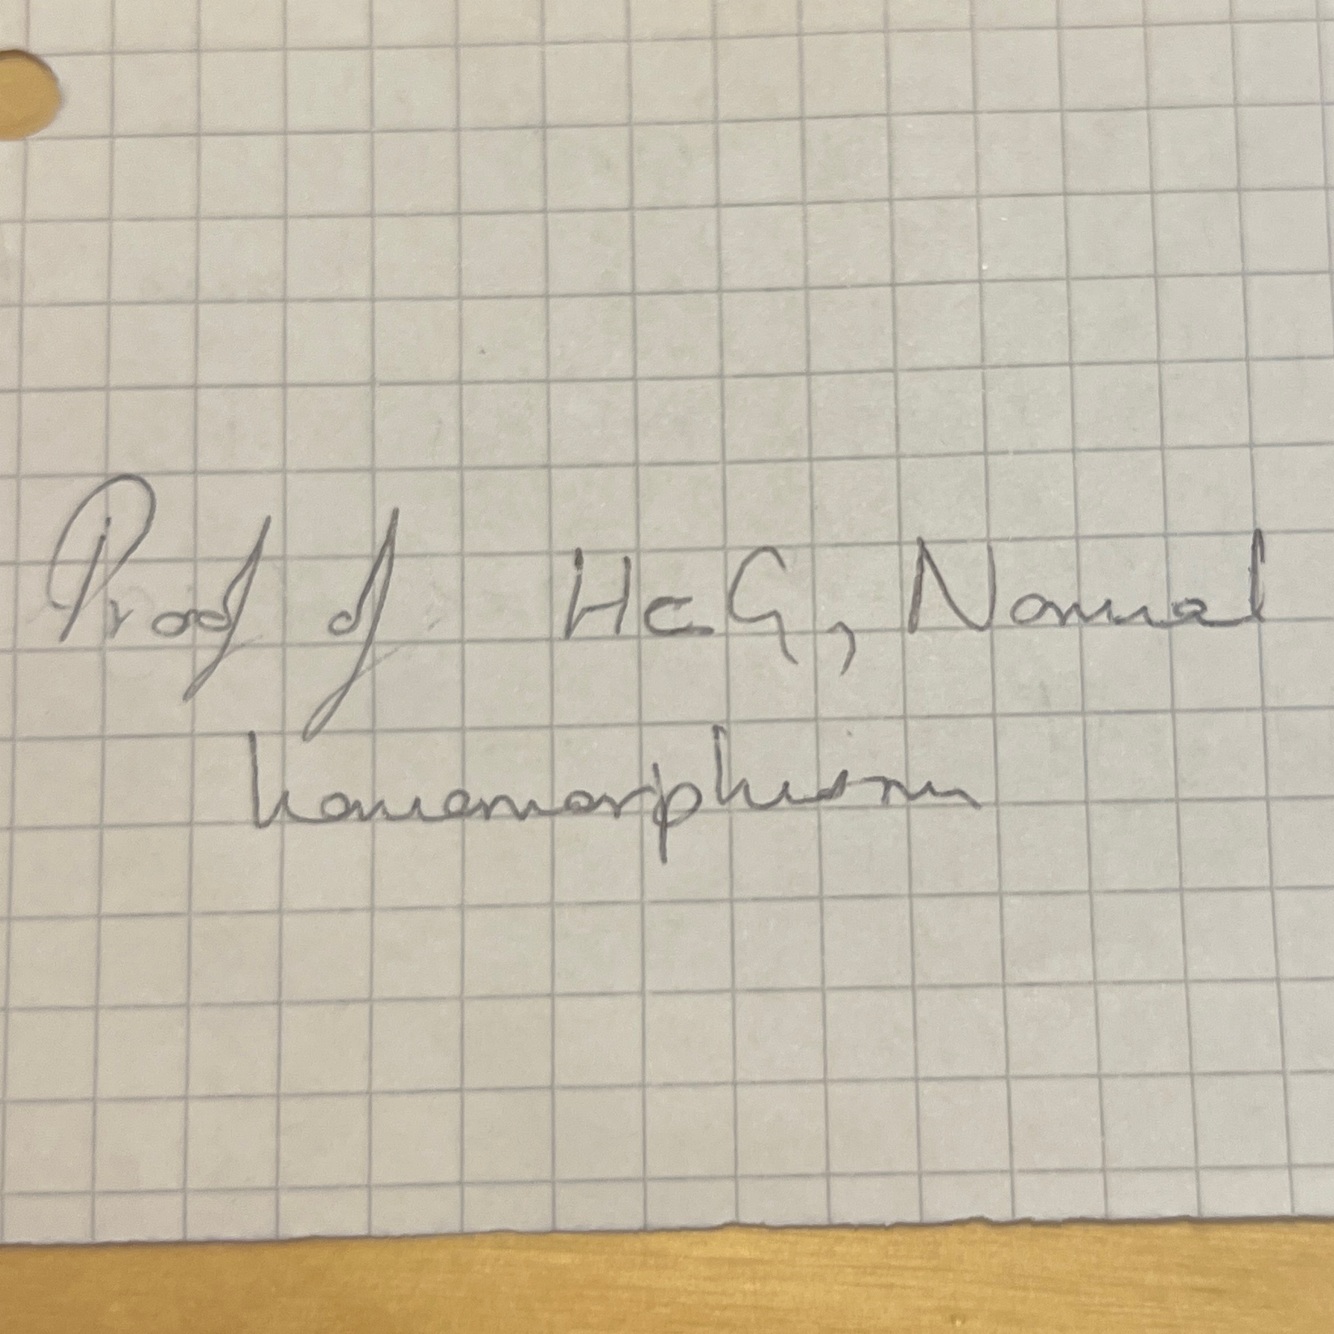 Proof of H⊂G, Normal
homomorphism